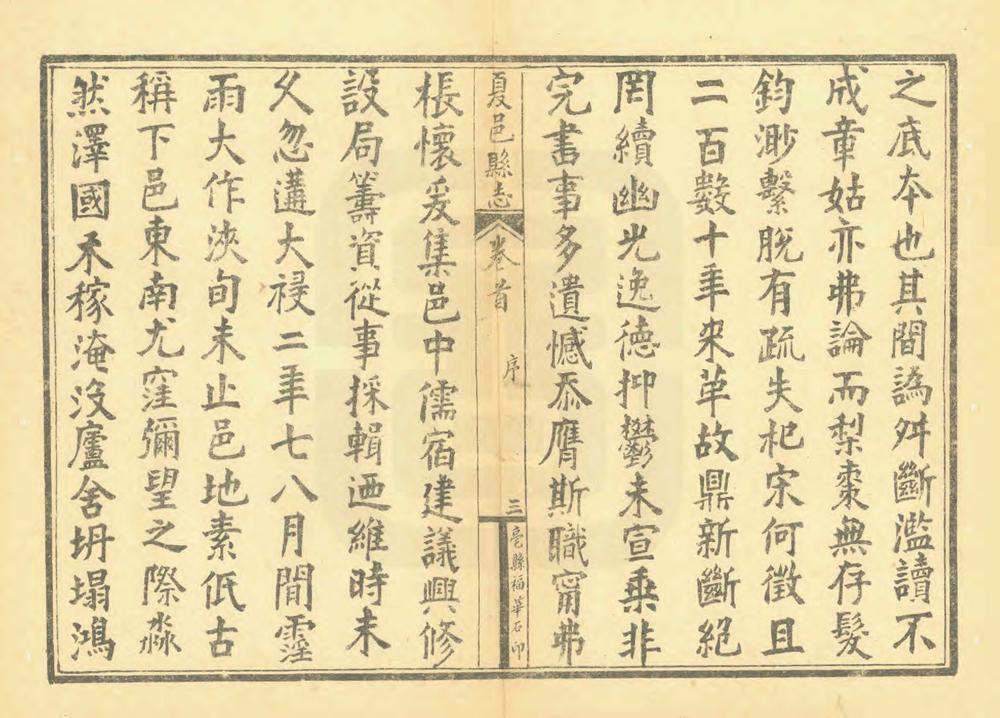 之底本也其間譌舛斷濫讀不
成章姑亦弗論而梨棗無存髮
鈞渺繫脫有疏失杞宋何徵且
二百數十年來革故鼎新斷絕
罔續幽光逸德抑鬱未宣乗非
完書事多遺憾忝膺斯職甯弗
夏邑縣志
卷首
序
三
亳縣福華石印
棖懷爰集邑中儒宿建議興修
設局籌資從事採輯迺維時未
久忽遘大祲二年七八月間霪
雨大作浹旬未止邑地素低古
稱下邑東南尤窪彌望之際淼
然澤國禾稼淹沒廬舍坍塌鴻